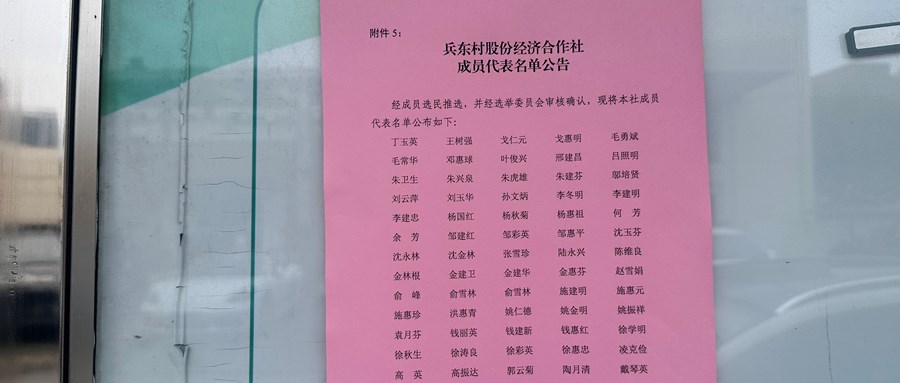 附件 5：
兵东村股份经济合作社
成员代表名单公告
经成员选民推选，并经选举委员会审核确认，现将本社成员
代表名单公布如下：
丁玉英 王树强 戈仁元 戈惠明 毛勇斌
毛常华 邓惠球 叶俊兴 邢建昌 吕照明
朱卫生 朱兴泉 朱虎雄 朱建芬 邬培贤
刘云萍 刘玉华 孙文炳 李冬明 李建明
李建忠 杨国红 杨秋菊 杨惠祖 何 芳
余 芳 邹建红 邹彩英 邹惠平 沈玉芬
沈永林 沈金林 张雪珍 陆永兴 陈维良
金林根 金建卫 金建华 金惠芬 赵雪娟
俞 峰 俞雪林 俞雪林 施建明 施惠元
施惠珍 洪惠青 姚仁德 姚金明 姚振祥
袁月芬 钱丽英 钱建新 钱惠红 徐学明
徐秋生 徐涛良 徐彩英 徐惠忠 凌克俭
高 英 高振达 郭云菊 陶月清 戴琴英